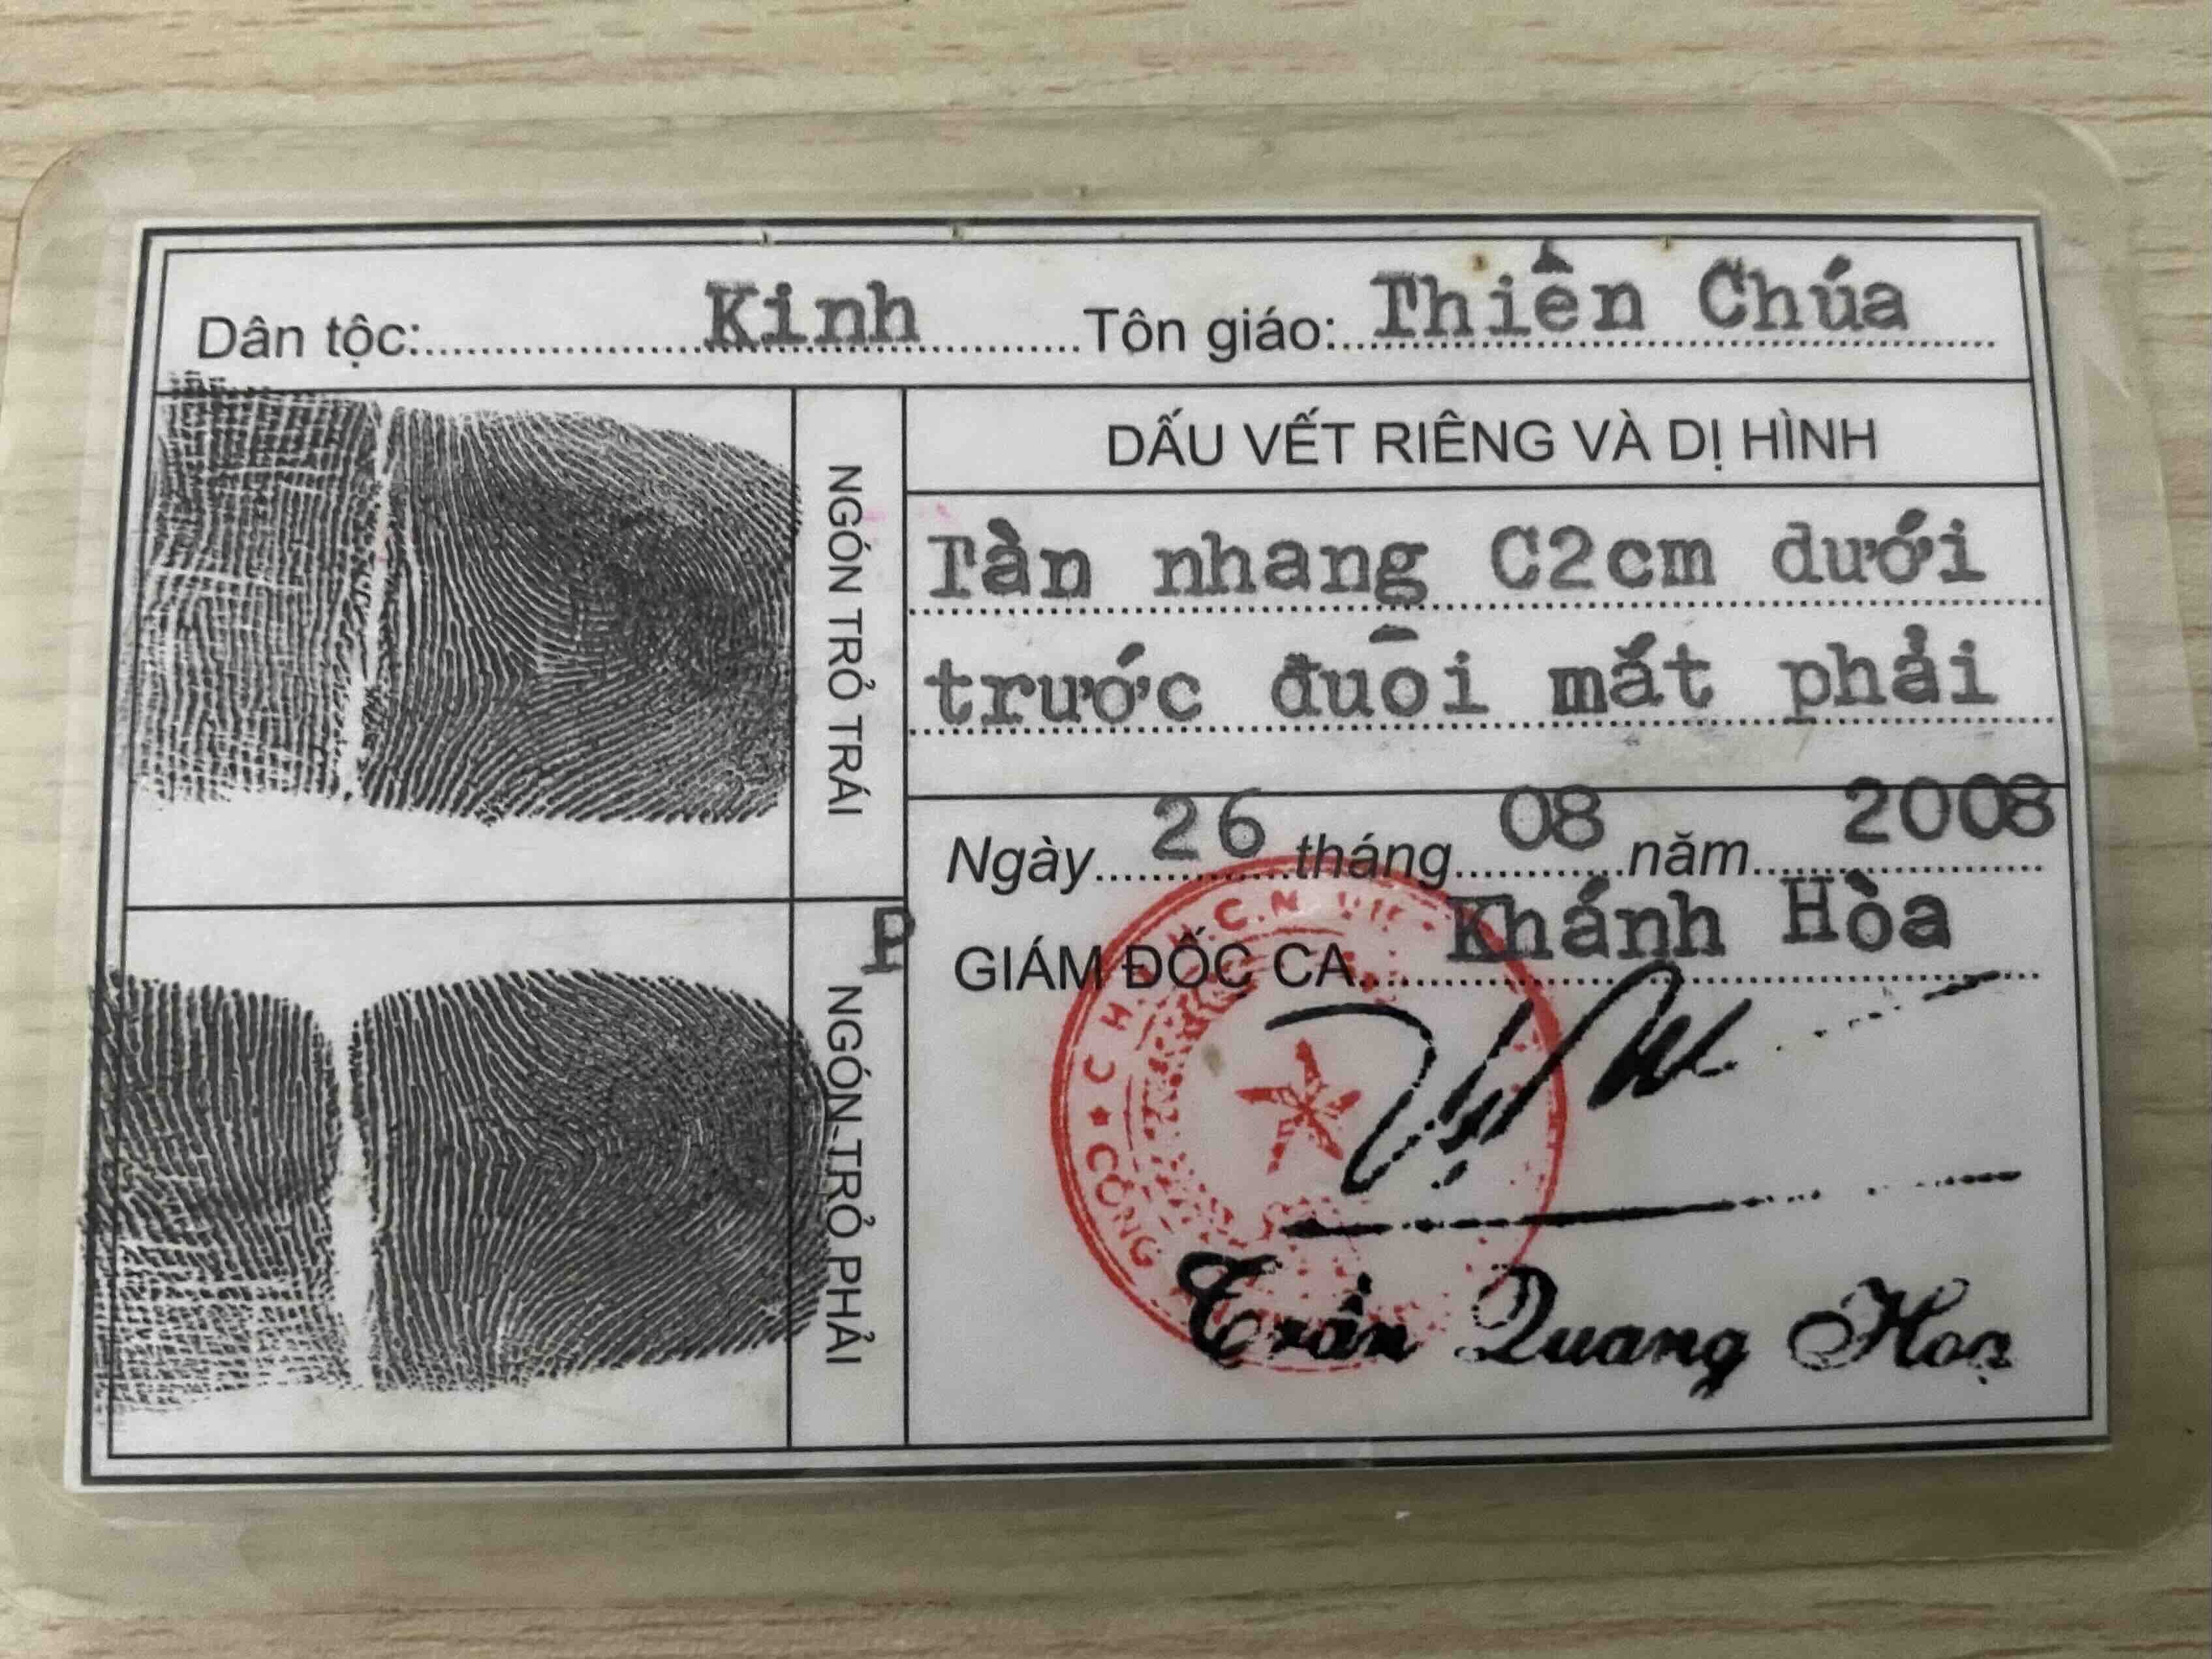 Dân tộc: Kinh Tôn giáo: Thiên Chúa
NGÓN TRỎ TRÁI
DẤU VẾT RIÊNG VÀ DỊ HÌNH
Tàn nhang C2cm dưới
trước đuôi mắt phải
Ngày 26 tháng 08 năm 2008
P GIÁM ĐỐC CA Khánh Hòa
NGÓN TRỎ PHẢI
C.H.X.H.C.N. VIỆT
CÔNG
Trần Quang Hoạ